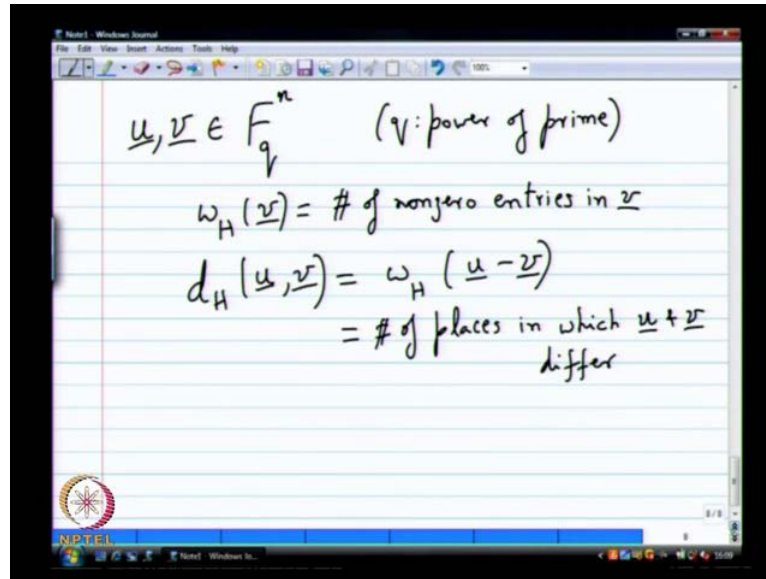 Note1 - Windows Journal
File Edit View Insert Actions Tools Help
100%
u, v ∈ F_q^n (q: power of prime)
w_H (v) = # of nonzero entries in v
d_H (u, v) = w_H (u - v)
= # of places in which u & v
differ
8/8
8
NPTEL
Note1 - Windows Jo...
16:09